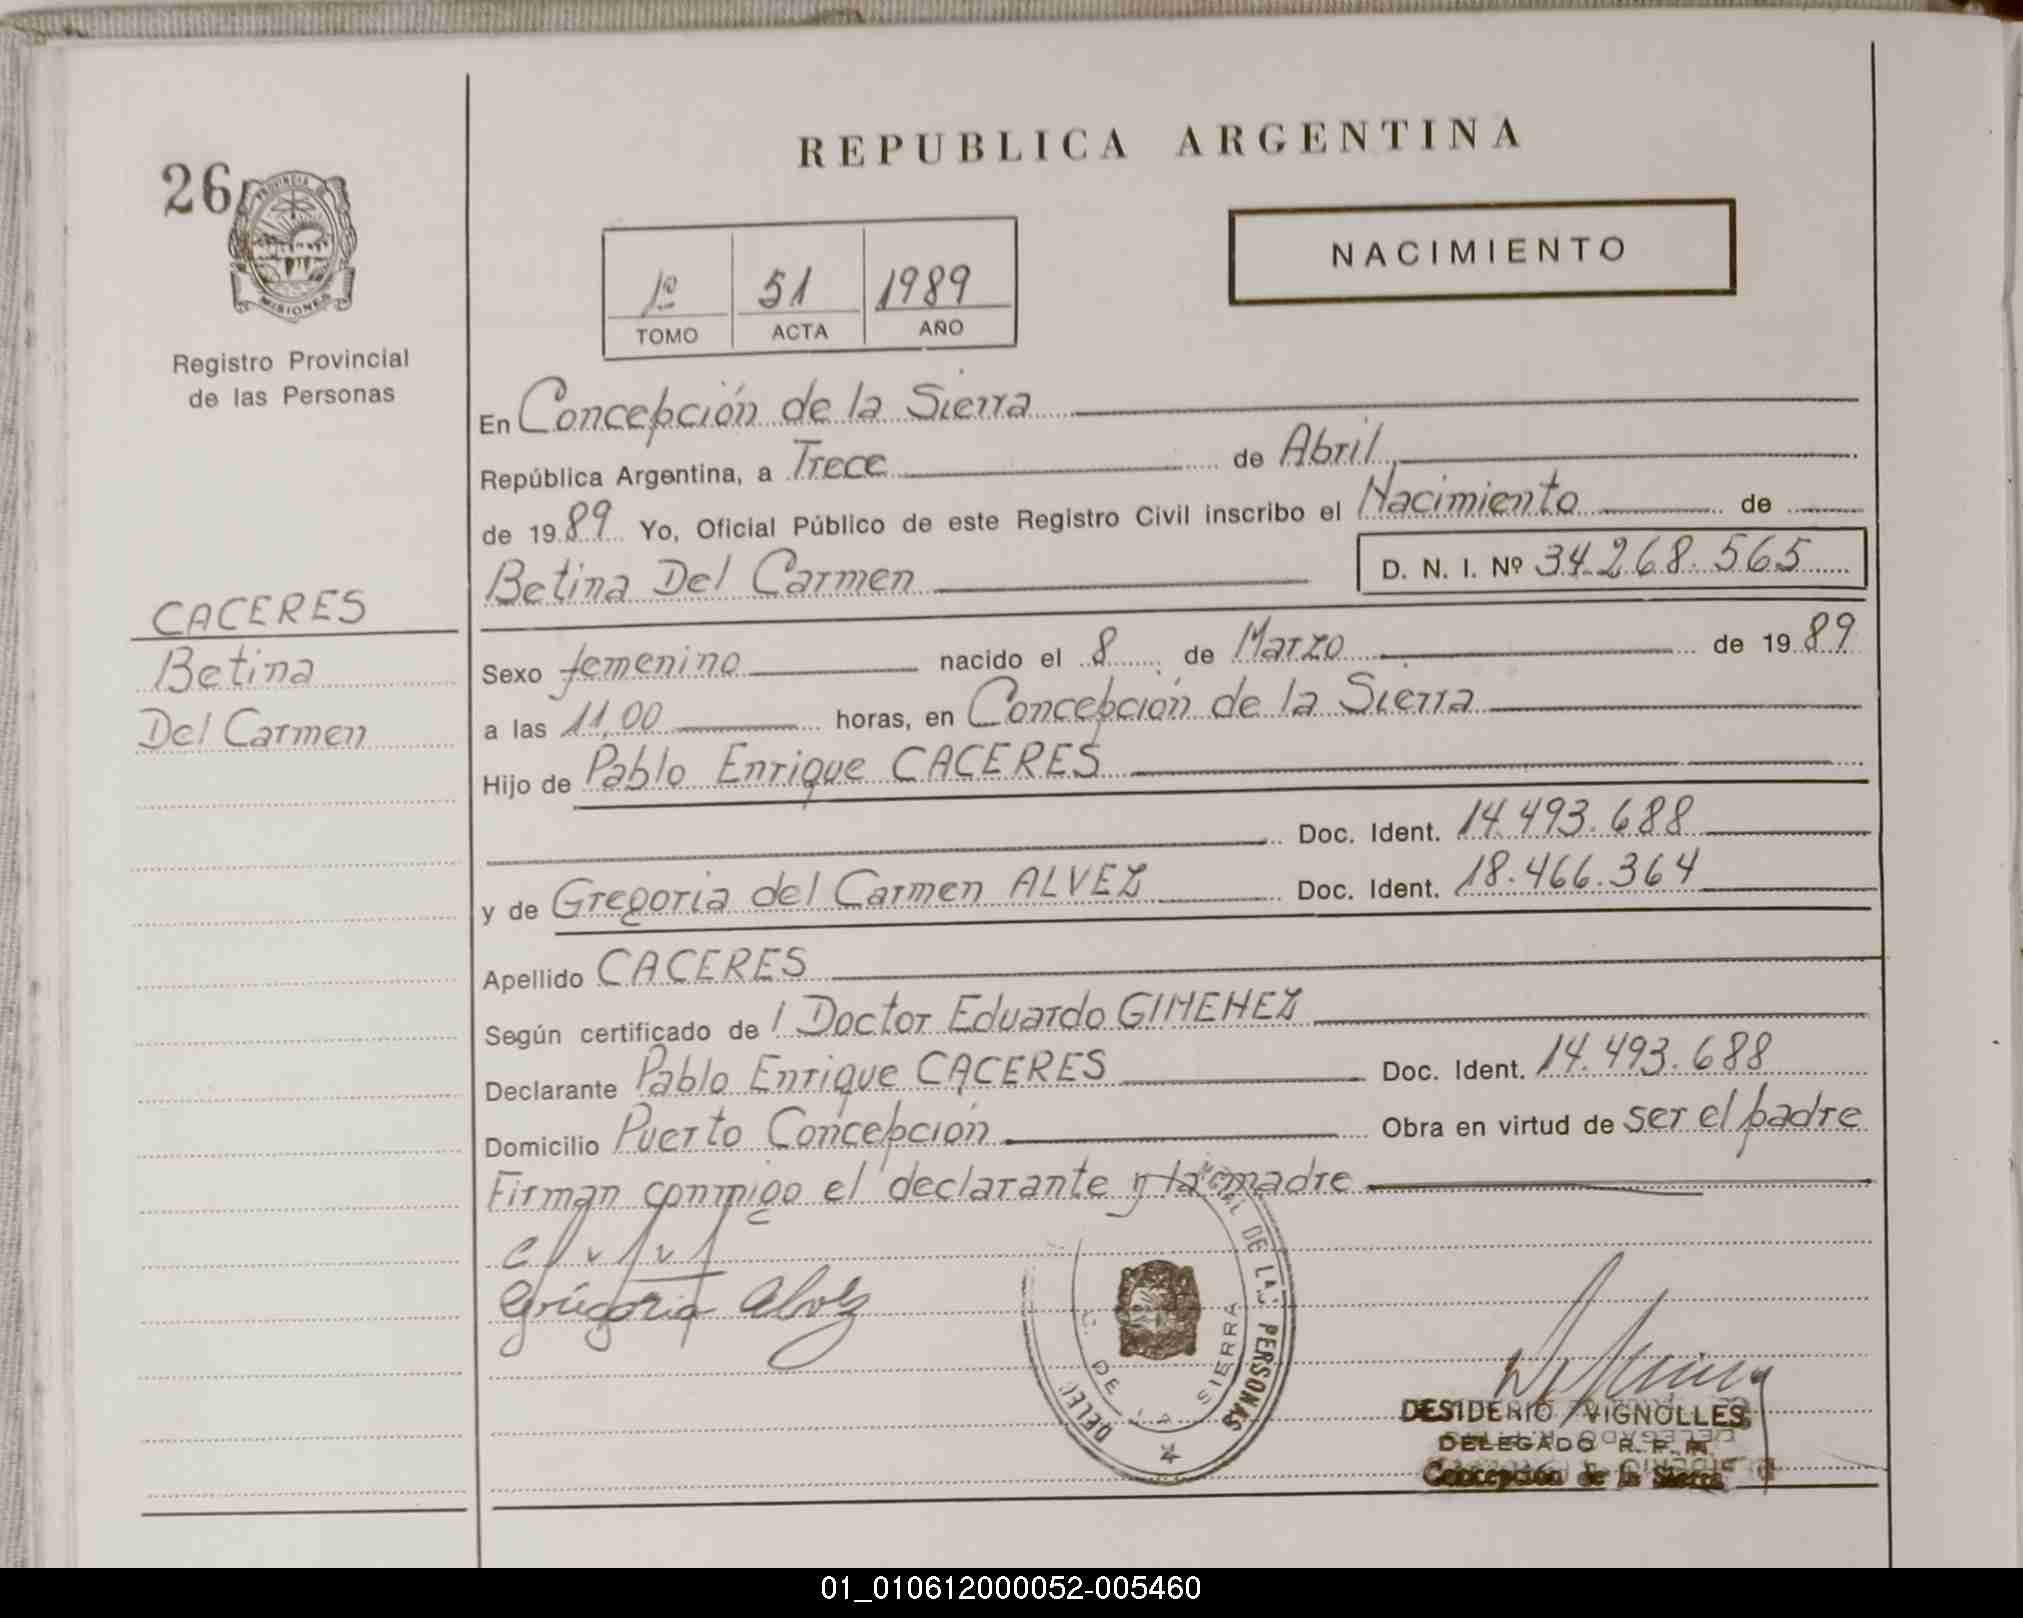 REPUBLICA ARGENTINA
26
PROVINCIA DE
MISIONES
Registro Provincial
de las Personas
NACIMIENTO
1º 51 1989
TOMO ACTA AÑO
En Concepción de la Sierra
República Argentina, a Trece de Abril
de 1989 Yo, Oficial Público de este Registro Civil inscribo el Nacimiento de
Betina Del Carmen D. N. I. Nº 34.268.565
CACERES
Betina
Del Carmen
Sexo femenino nacido el 8 de Marzo de 1989
a las 11,00 horas, en Concepción de la Sierra
Hijo de Pablo Enrique CACERES
Doc. Ident. 14.493.688
y de Gregoria del Carmen ALVEZ Doc. Ident. 18.466.364
Apellido CACERES
Según certificado de l Doctor Eduardo GIMENEZ
Declarante Pablo Enrique CACERES Doc. Ident. 14.493.688
Domicilio Puerto Concepción Obra en virtud de ser el padre
Firman conmigo el declarante y la madre
Gregoria Alvez
DE LAS PERSONAS
C. DE LA SIERRA
DESIDERIO VIGNOLLES
DELEGADO R. P. P.
Concepción de la Sierra
01_010612000052-005460